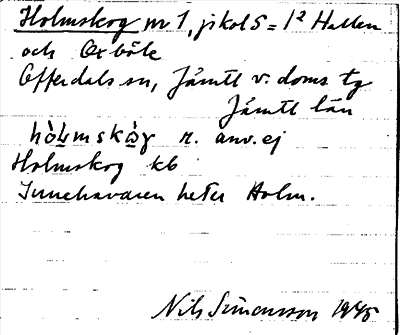 Holmskog nr 1, jkol 5 = 1² Hallen
och Oxböle
Offerdals sn, Jämtl v. doms tg
Jämtl län
hòḷmskò̱g n. anv. ej
Holmskog kb
Innehavaren heter Holm.
Nils Simonsson 1945